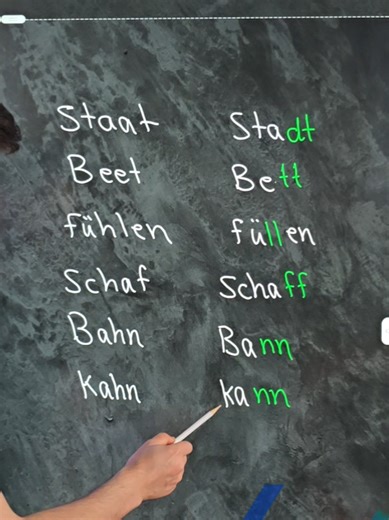 Staat Stadt
Beet Bett
fühlen füllen
Schaf schaff
Bahn Bann
Kahn kann